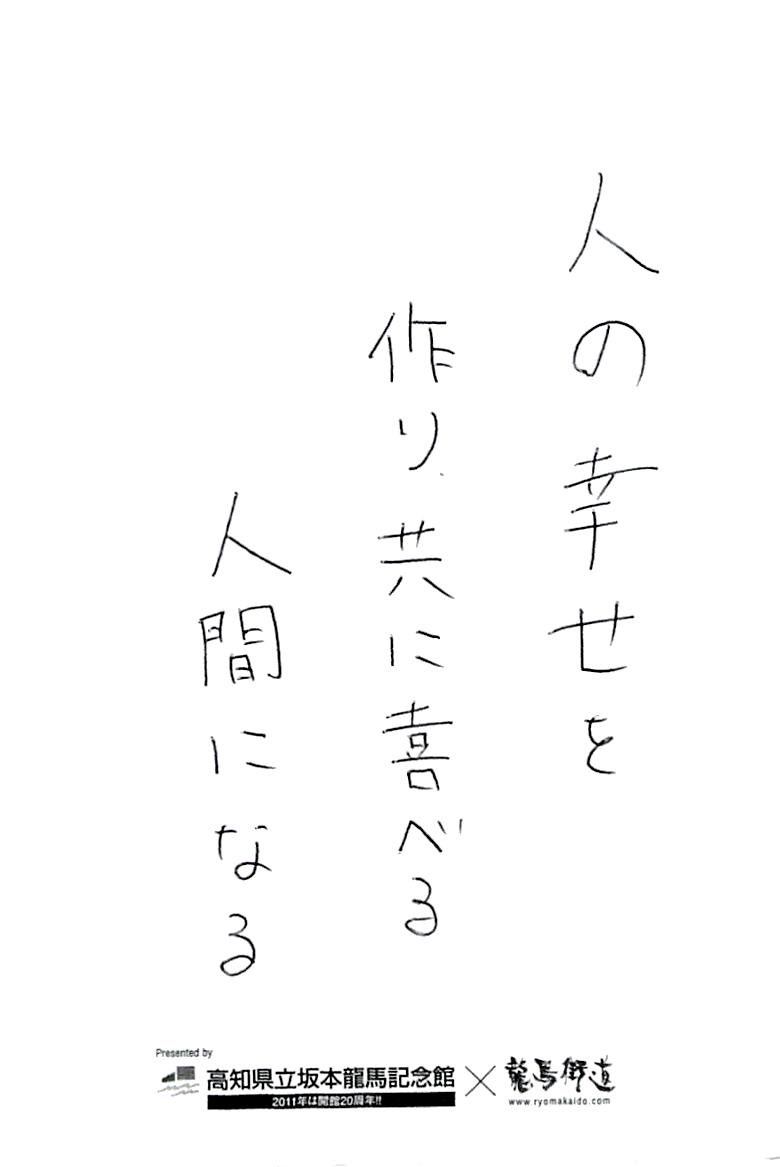 人の幸せを
作り共に喜べる
人間になる
Presented by
高知県立坂本龍馬記念館
2011年は開館20周年!!
×
龍馬街道
www.ryomakaido.com